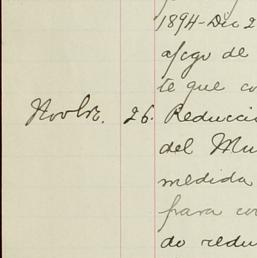 1894-Dic 2
afcgo de
te que co
Novbre. 26. Reducci
del Mu
medida
para co
do redu